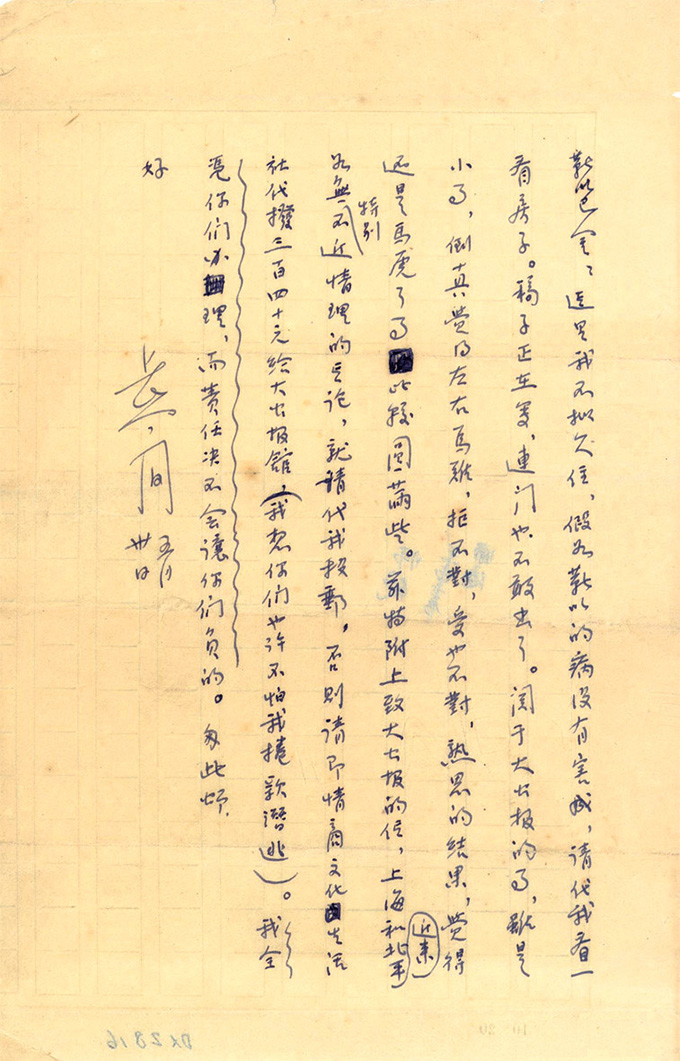 靳以巴金：这里我不拟久住，假如靳以的病没有害成，请代我看一
看房子。稿子正在写，連门也不敢出了。関于大公报的事，雖是
小事，倒真觉得左右為难，拒不對，受也不對，熟思的结果，覺得
还是馬虎了事比较圆满些。兹特附上致大公报的信，上海和北平近来
如無特别不近情理的言论，就請代我投郵，否则请即情商文化生活
社代撥三百四十元给大公报馆，（我想你们也许不怕我捲款潜逃）。我全
凭你们办理，而責任决不会讓你们負的。匆此頌
好
蘆
五月
卅日
DX2816